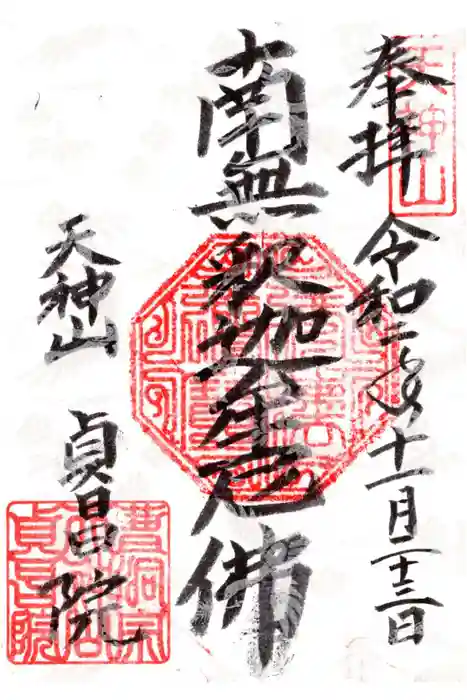 奉拝
令和二年十一月二十三日
南無釈迦牟尼佛
天神山
貞昌院
天神山
曹洞宗
貞昌院